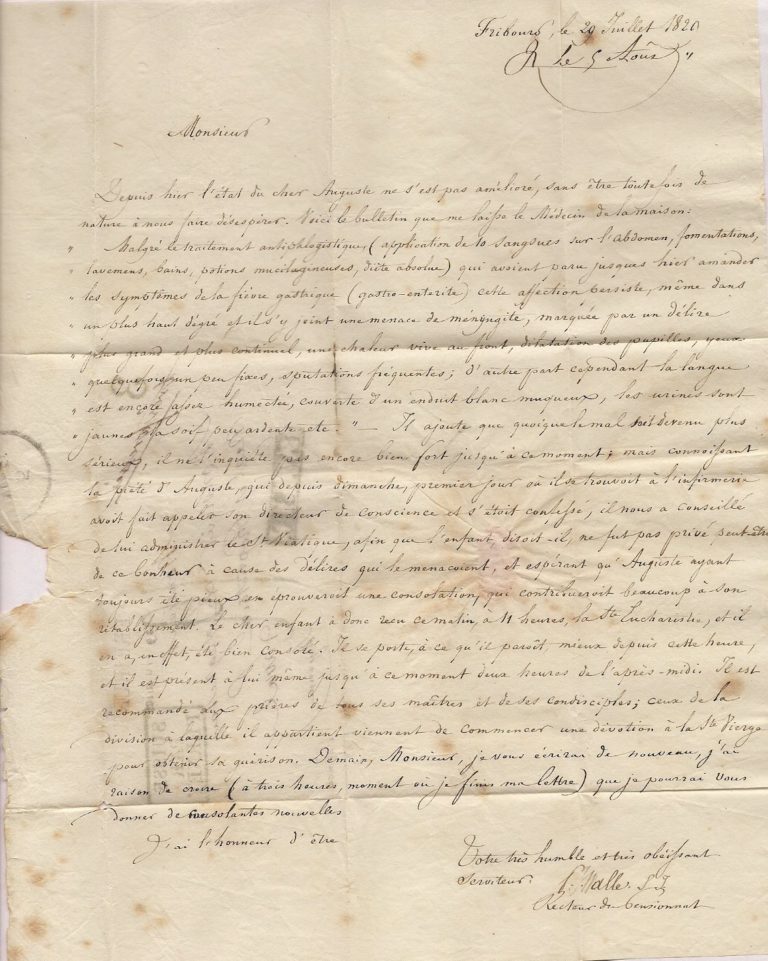 Fribourg, le 29 Juillet 182
R Le 5 Août "
Monsieur
Depuis hier l'état du cher Auguste ne s'est pas amélioré, sans être toutefois de
nature à nous faire désespérer. Voici le bulletin que me laisse le Médecin de la maison:
" Malgré le traitement antiphlogistique, (application de 10 sangsues sur l'abdomen, fomentations,
" lavemens, bains, potions mucilagineuses, diète absolue) qui avoient paru jusques hier amander
" les symptômes de la fièvre gastrique (gastro-enterite) cette affection persiste, même dans
" un plus haut dégré et il s'y joint une menace de méningite, marquée par un délire
" plus grand et plus continuel, une chaleur vive au front, dilatation des pupilles, yeux
" quelquefois un peu fixes, sputations fréquentes; d'autre part cependant la langue
" est encore assez humectée, couverte d'un enduit blanc muqueux, les urines sont
" jaunes, la soif peu ardente etc. " — Il ajoute que quoique le mal soit devenu plus
sérieux, il ne l'inquiète pas encore bien fort jusqu'à ce moment; mais connoissant
la piété d'Auguste, qui depuis dimanche, premier jour où il se trouvoit à l'infirmerie
avoit fait appeler son directeur de conscience et s'étoit confessé, il nous a conseillé
de lui administrer le St Viatique, afin que l'enfant, disoit-il, ne fut pas privé peut-être
de ce bonheur à cause des délires qui le menaçoient, et espérant qu'Auguste ayant
toujours été pieux en éprouveroit une consolation, qui contribueroit beaucoup à son
rétablissement. Le cher enfant a donc reçu ce matin, à 11 heures, la Ste Eucharistie, et il
en a, en effet, été bien consolé. Il se porte, à ce qu'il paroît, mieux depuis cette heure,
et il est présent à lui même jusqu'à ce moment deux heures de l'après-midi. Il est
recommandé aux prières de tous ses maîtres et de ses condisciples; ceux de la
division à laquelle il appartient viennent de commencer une dévotion à la Ste Vierge
pour obtenir sa guérison. Demain, Monsieur, je vous écrirai de nouveau, j'ai
raison de croire (à trois heures, moment où je finis ma lettre) que je pourrai vous
donner de consolantes nouvelles
J'ai l'honneur d'être
Votre très humble et très obéissant
Serviteur.
Galle. S. J.
Recteur du Pensionnat